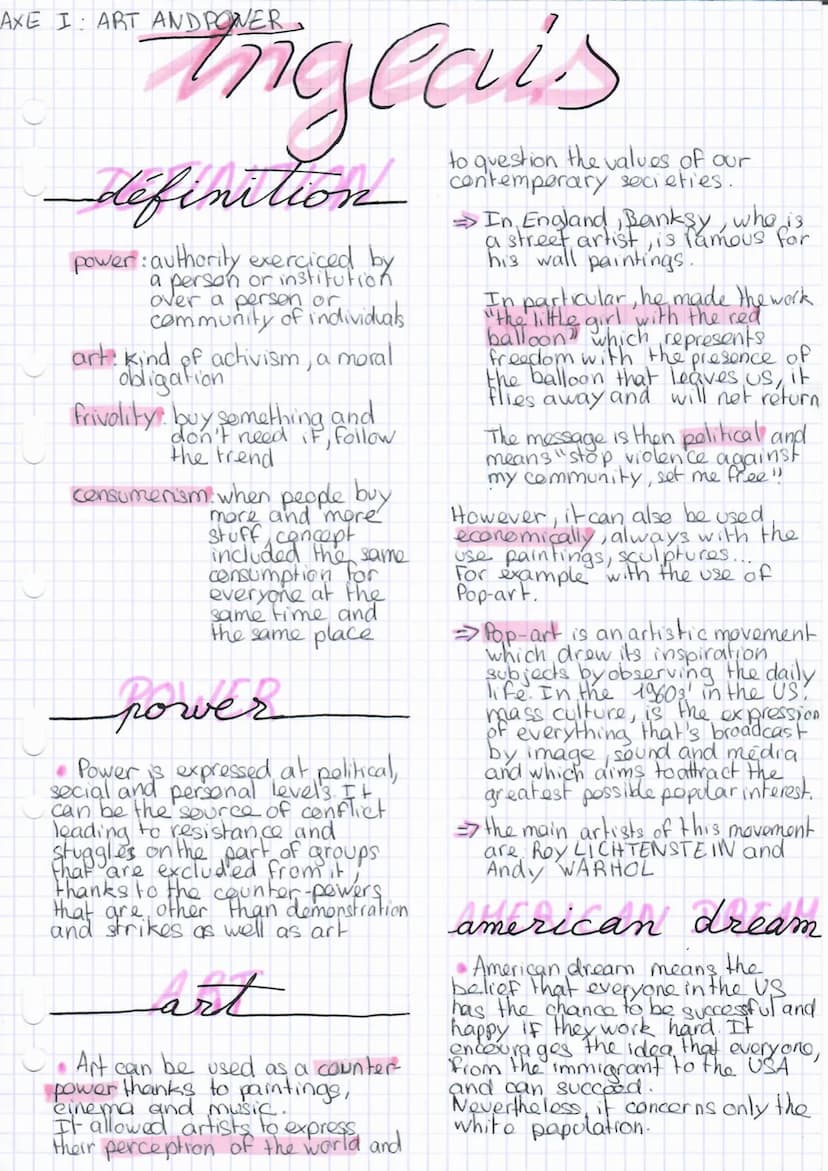 AXE I : ART AND POWER
Anglais
DEFINITION
définition
power : authority exerciced by
a person or institution
over a person or
community of individuals
art : kind of activism, a moral
obligation
frivolity : buy something and
don't need it, follow
the trend
consumerism : when people buy
more and more
stuff, concept
included the same
consumption for
everyone at the
same time and
the same place
POWER
power
• Power is expressed at political,
social and personal levels. It
can be the source of conflict
leading to resistance and
stuggles on the part of groups
that are excluded from it,
thanks to the counter-powers
that are other than demonstration
and strikes as well as art
ART
art
• Art can be used as a counter-
power thanks to paintings,
cinema and music.
It allowed artists to express
their perception of the world and
to question the values of our
contemporary societies.
⇒ In England, Banksy, who is
a street artist, is famous for
his wall paintings.
In particular, he made the work
"the little girl with the red
balloon" which represents
freedom with the presence of
the balloon that leaves us, it
flies away and will not return
The message is then political and
means "stop violence against
my community, set me free"!
However, it can also be used
economically, always with the
use paintings, sculptures...
For example with the use of
Pop-art.
⇒ Pop-art is an artistic movement
which drew its inspiration
subjects by observing the daily
life. In the 1960s' in the US.
mass culture, is the expression
of everything that's broadcast
by image, sound and média
and which aims to attract the
greatest possible popular interest.
⇒ the main artists of this movement
are Roy LICHTENSTEIN and
Andy WARHOL
AMERICAN DREAM
american dream
• American dream means the
belief that everyone in the US
has the chance to be successful and
happy if they work hard. It
encourages the idea that everyone,
from the immigrant to the USA
and can succeed.
Nevertheless, it concerns only the
white population.